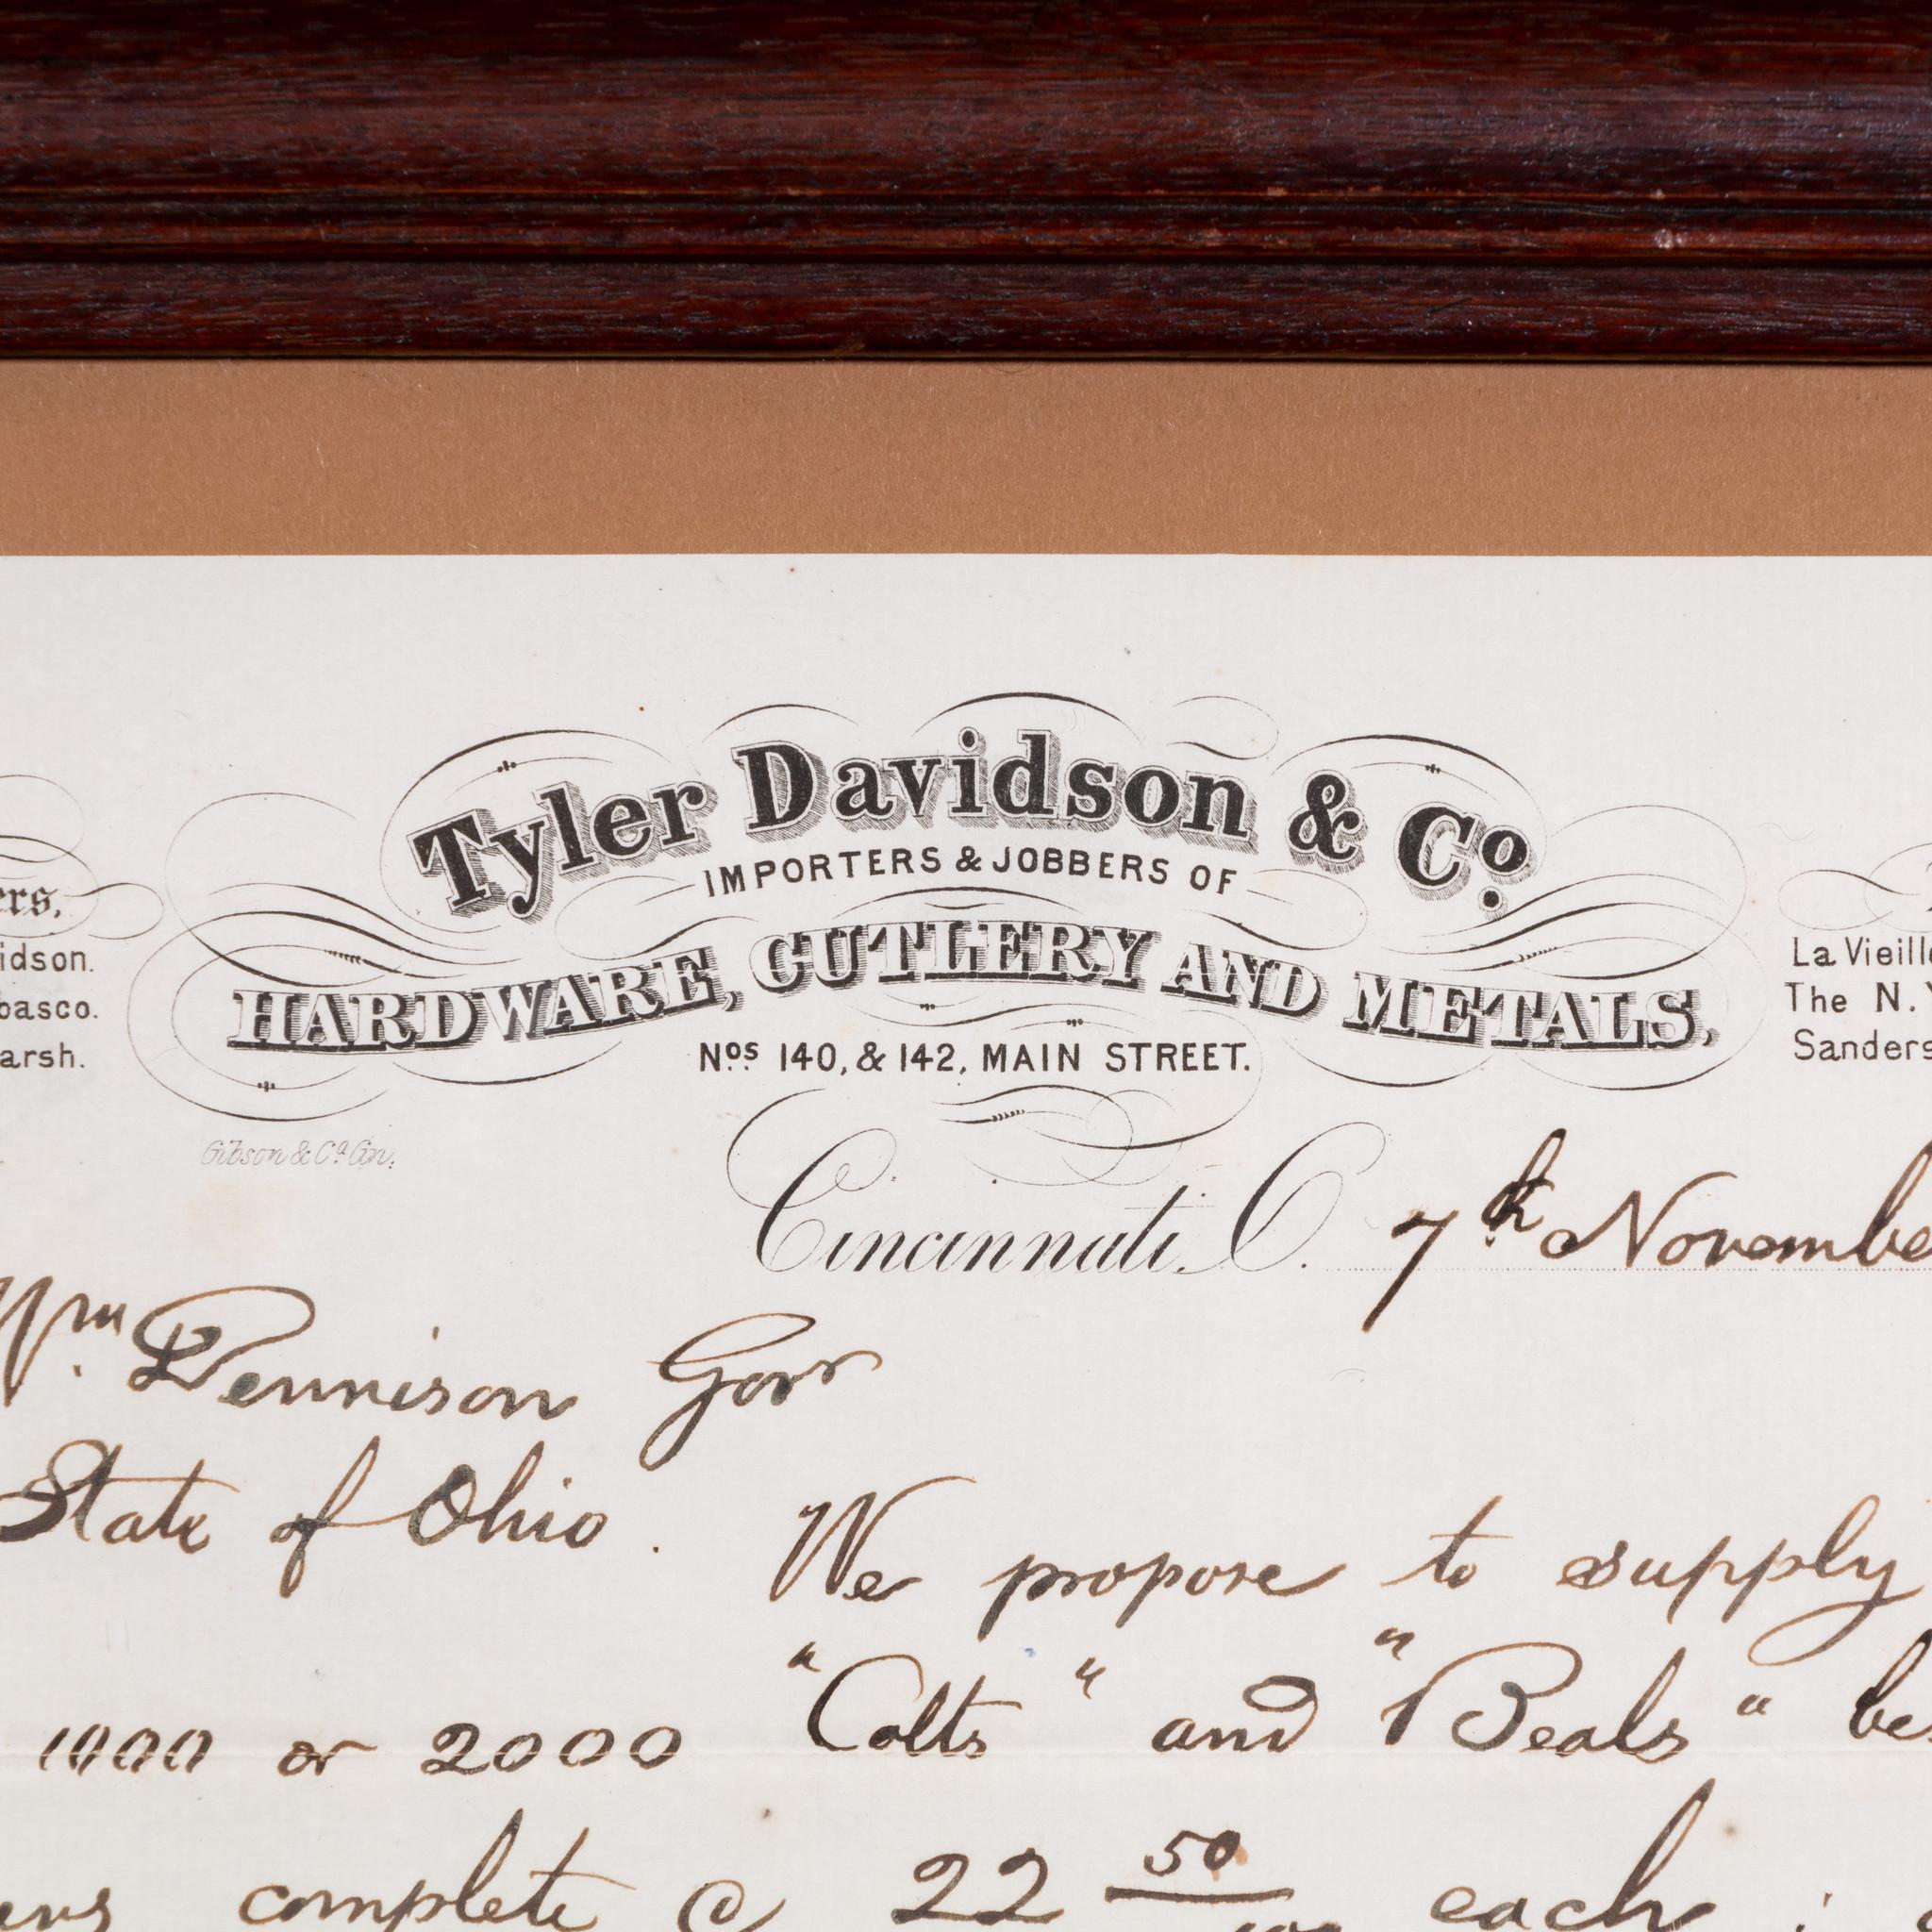 Tyler Davidson & Co.
IMPORTERS & JOBBERS OF
HARDWARE, CUTLERY AND METALS,
Nos. 140, & 142, MAIN STREET.
ers,
idson.
basco.
arsh.
La Vieill
The N. Y
Sanders
Gibson & Co. Cin.
Cincinnati, O. 7th Novembe
Wm. Dennison Govr
State of Ohio.
We propose to supply
1000 or 2000 "Colts" and "Beals" be
ers complete @ 22 50/100 each;